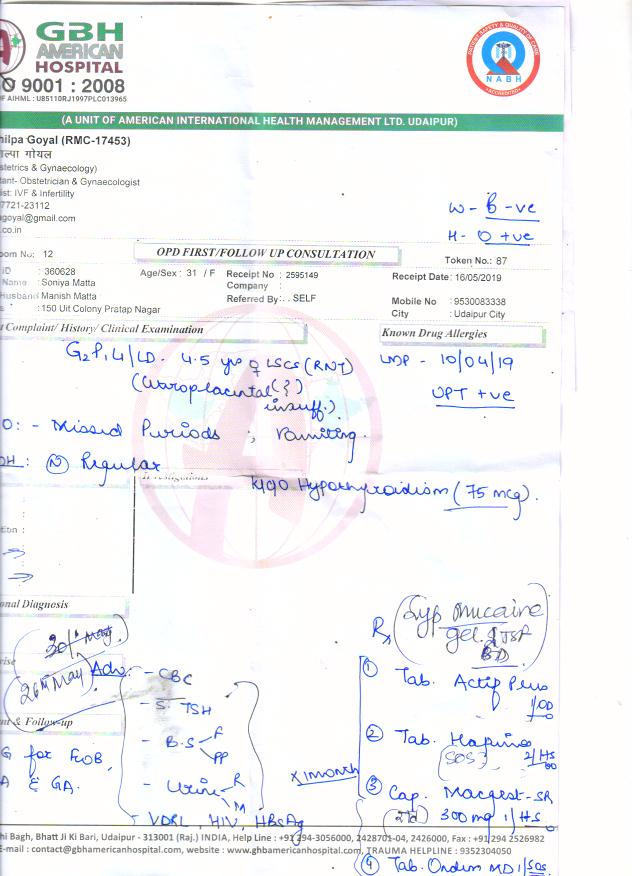 GBH
AMERICAN
HOSPITAL
9001 : 2008
F AIHML : U85110RJ1997PLC013965
PATIENT SAFETY & QUALITY OF CARE
NABH
ACCREDITED
(A UNIT OF AMERICAN INTERNATIONAL HEALTH MANAGEMENT LTD. UDAIPUR)
hilpa Goyal (RMC-17453)
ल्पा गोयल
stetrics & Gynaecology)
tant- Obstetrician & Gynaecologist
ist: IVF & Infertility
7721-23112
goyal@gmail.com
.co.in
W - B -ve
H - O +ve
oom No: 12
OPD FIRST/FOLLOW UP CONSULTATION
Token No.: 87
ID : 360628
Age/Sex : 31 / F
Receipt No : 2595149
Receipt Date : 16/05/2019
Name : Soniya Matta
Company :
Husband Manish Matta
Referred By : . SELF
Mobile No : 9530083338
s : 150 Uit Colony Pratap Nagar
City : Udaipur City
t Complaint/ History/ Clinical Examination
Known Drug Allergies
G2P1L1/LD. 4.5 yrs LSCS (RNT)
LMP - 10/04/19
insuff.)
UPT +ve
O: - Missed Periods ; Vomiting.
OH : N Regular
Investigations
K/C/O Hypothyroidism (75 mcg).
tion :
onal Diagnosis
30th May
26th May
Rx
Syp Mucaine
gel 2 TSF
BD
vise
Adv: - CBC
- S. TSH
- B.S F
PP
- Urine R
M
VDRL, HIV, HBsAg
nt & Follow-up
G for FOB,
A & GA.
x 1 month
1 Tab.
1 OD
2 Tab.
(SOS)
2/HS
3 Cap. Macgest-SR
300 mg 1/HS
4 Tab. Ondem MD 1/SOS
hi Bagh, Bhatt Ji Ki Bari, Udaipur - 313001 (Raj.) INDIA, Help Line : +91 294-3056000, 2428701-04, 2426000, Fax : +91 294 2526982
E-mail : contact@gbhamericanhospital.com, website : www.ghbamericanhospital.com, TRAUMA HELPLINE : 9352304050